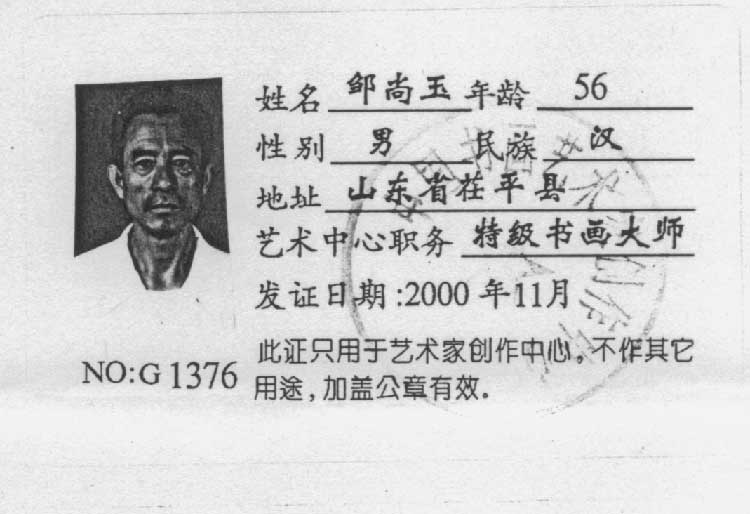 姓名 邹尚玉 年龄 56
性别 男 民族 汉
地址 山东省茌平县
艺术中心职务 特级书画大师
发证日期:2000年11月
NO:G 1376
此证只用于艺术家创作中心。不作其它
用途,加盖公章有效.